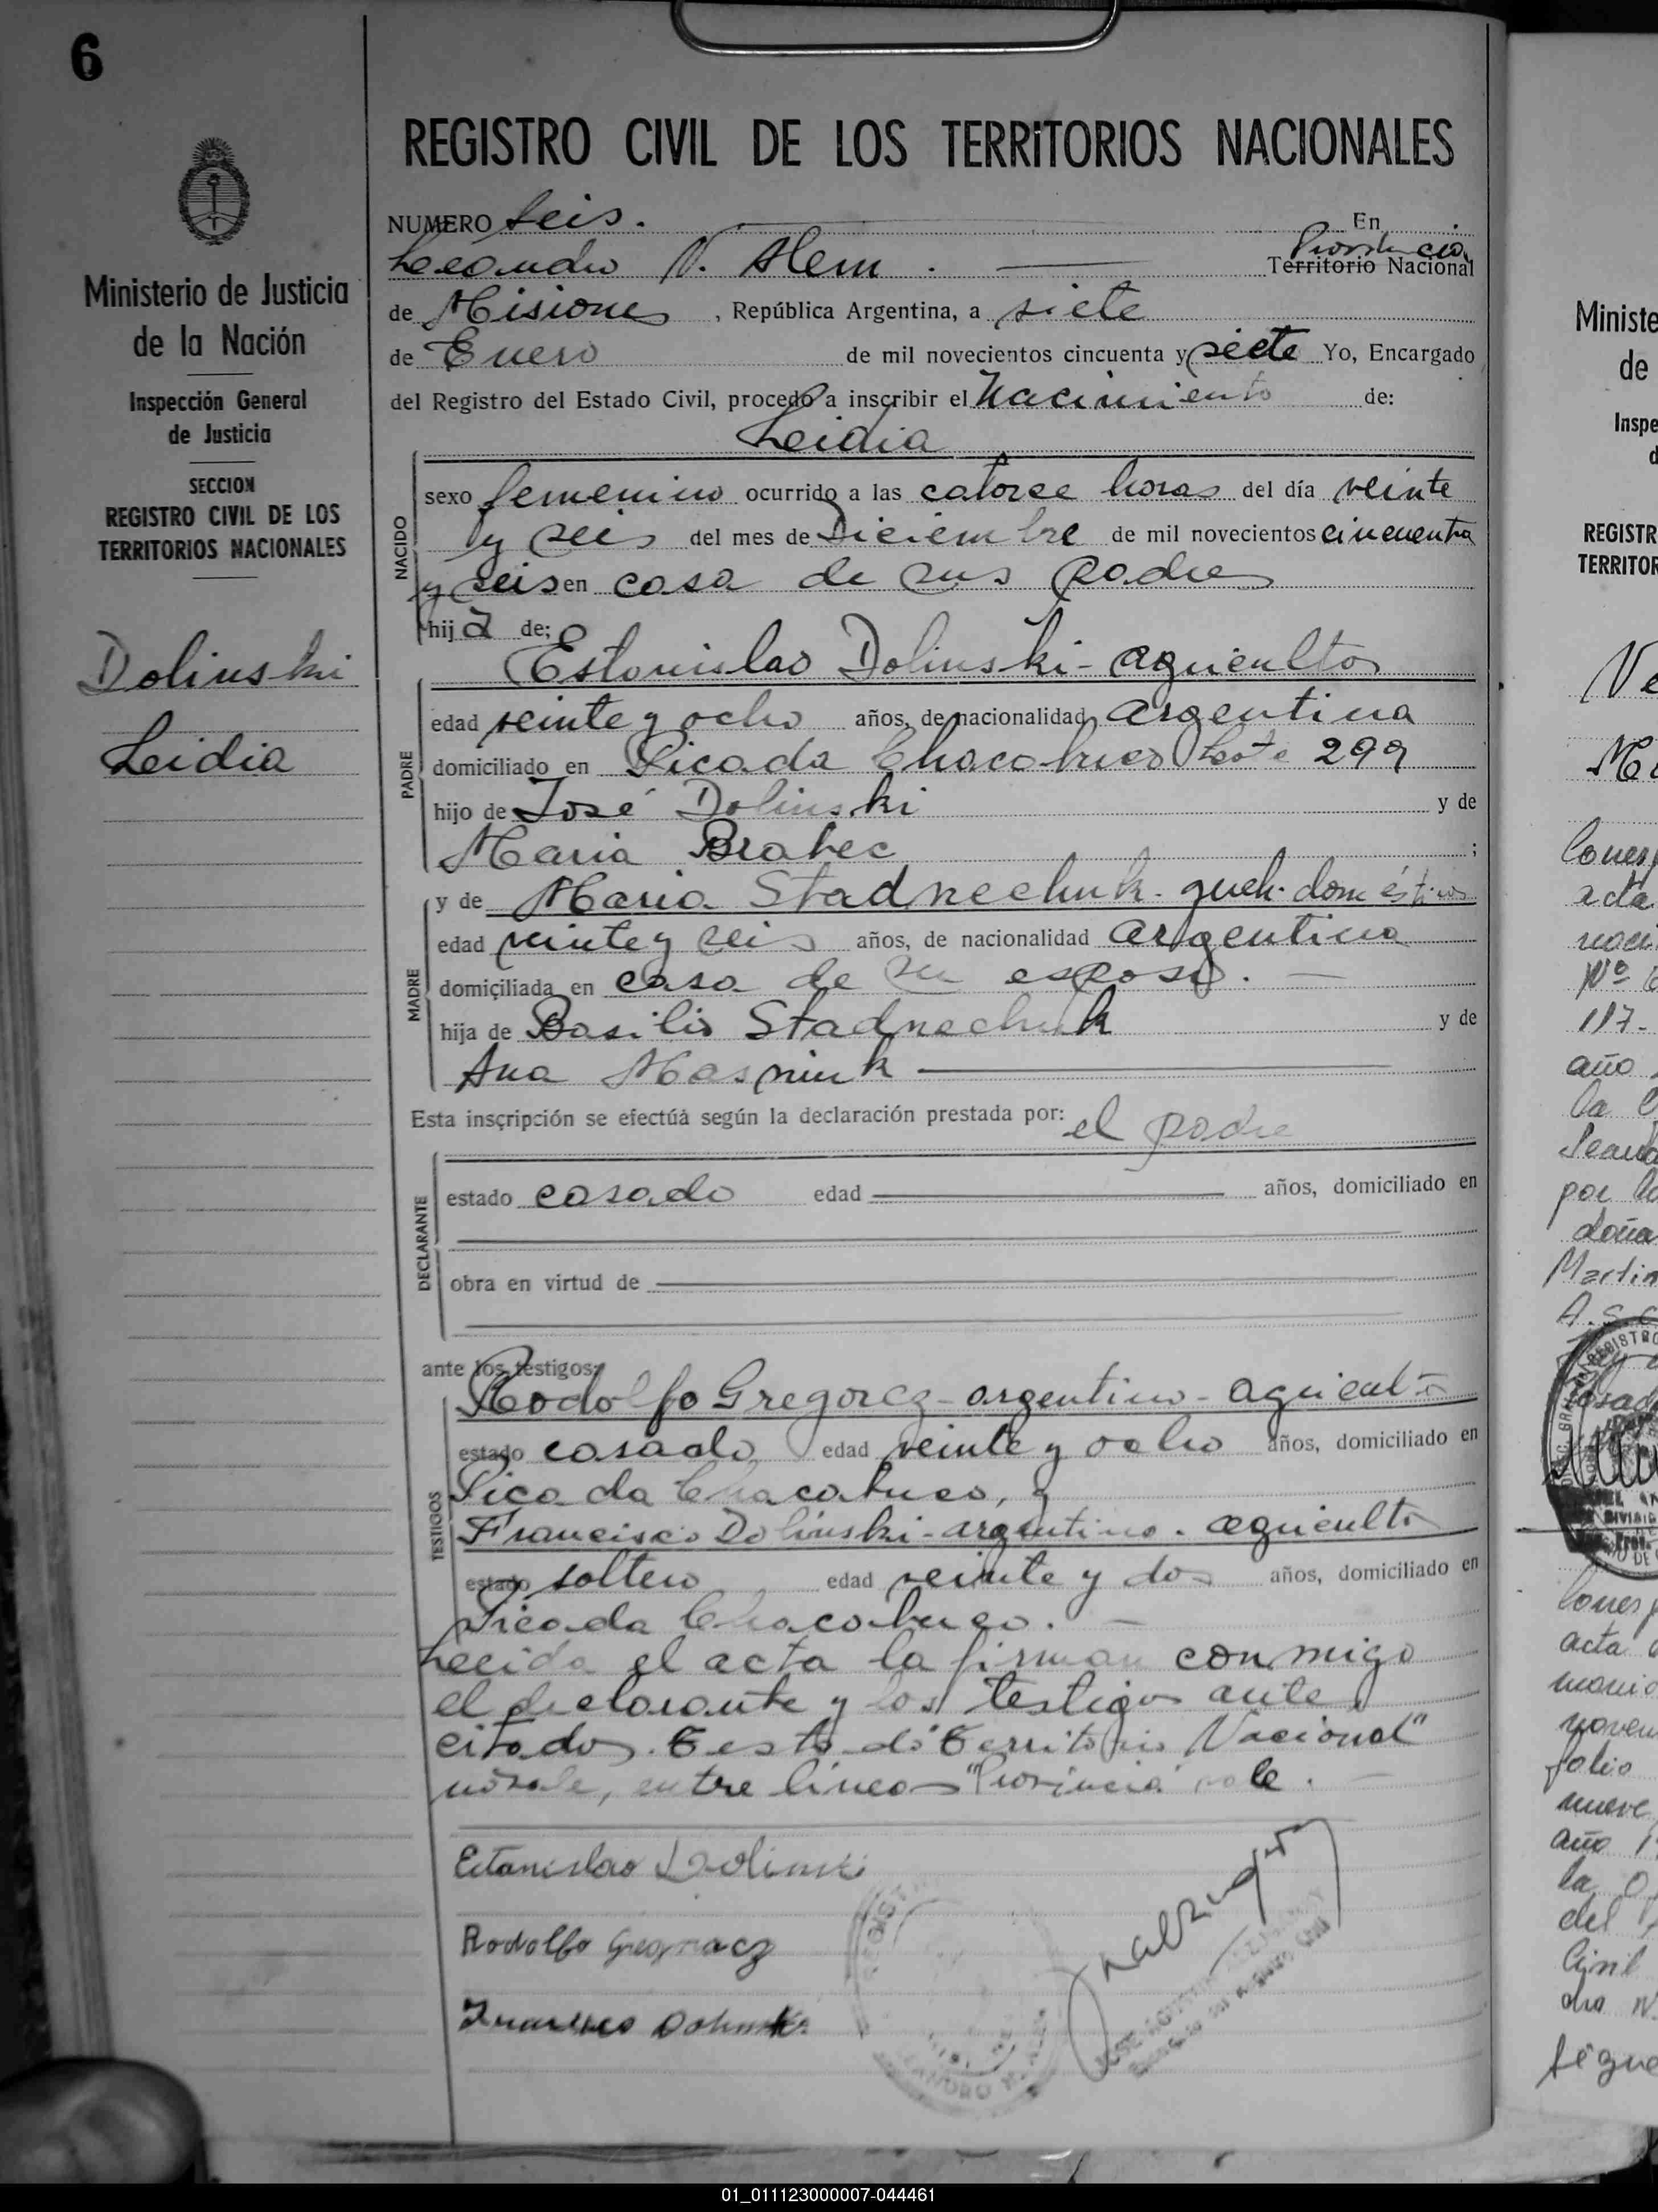 6
REGISTRO CIVIL DE LOS TERRITORIOS NACIONALES
NUMERO Seis. En
Leandro N. Alem. Provincia
Territorio Nacional
de Misiones, República Argentina, a siete
de Enero de mil novecientos cincuenta y siete Yo, Encargado
del Registro del Estado Civil, procedo a inscribir el Nacimiento de:
Leidia
NACIDO
sexo femenino ocurrido a las catorce horas del día veinte
y seis del mes de Diciembre de mil novecientos cincuenta
y seis en casa de sus padres
hija de:
Estanislao Dolinski - agricultor
PADRE
edad veinte y ocho años, de nacionalidad Argentina
domiciliado en Picada Chacabuco Lote 299
hijo de José Dolinski y de
Maria Brabec ;
MADRE
y de Maria Stadnechuk - queh. domésticos
edad veinte y seis años, de nacionalidad Argentina
domiciliada en casa de su esposo. -
hija de Basilio Stadnechuk y de
Ana Masniuk
Esta inscripción se efectúa según la declaración prestada por: el padre
DECLARANTE
estado casado edad años, domiciliado en
obra en virtud de
ante los testigos:
TESTIGOS
Rodolfo Gregoracz - argentino - agricultor
estado casado edad veinte y ocho años, domiciliado en
Picada Chacabuco, y
Francisco Dolinski - argentino - agricultor
estado soltero edad veinte y dos años, domiciliado en
Picada Chacabuco. -
Leida el acta la firman conmigo
el declarante y los testigos ante
citados. Testado "Territorio Nacional"
no vale, entre lineas "Provincia" vale. -
Estanislao Dolinski
Rodolfo Gregoracz
Francisco Dolinski
Ministerio de Justicia
de la Nación
Inspección General
de Justicia
SECCION
REGISTRO CIVIL DE LOS
TERRITORIOS NACIONALES
Dolinski
Leidia
Ministe
de
Inspe
REGISTR
TERRITOR
acta
Nº
117-
año
la
por
doña
acta
folio
nueve
año
la
del
Civil
01_011123000007-044461